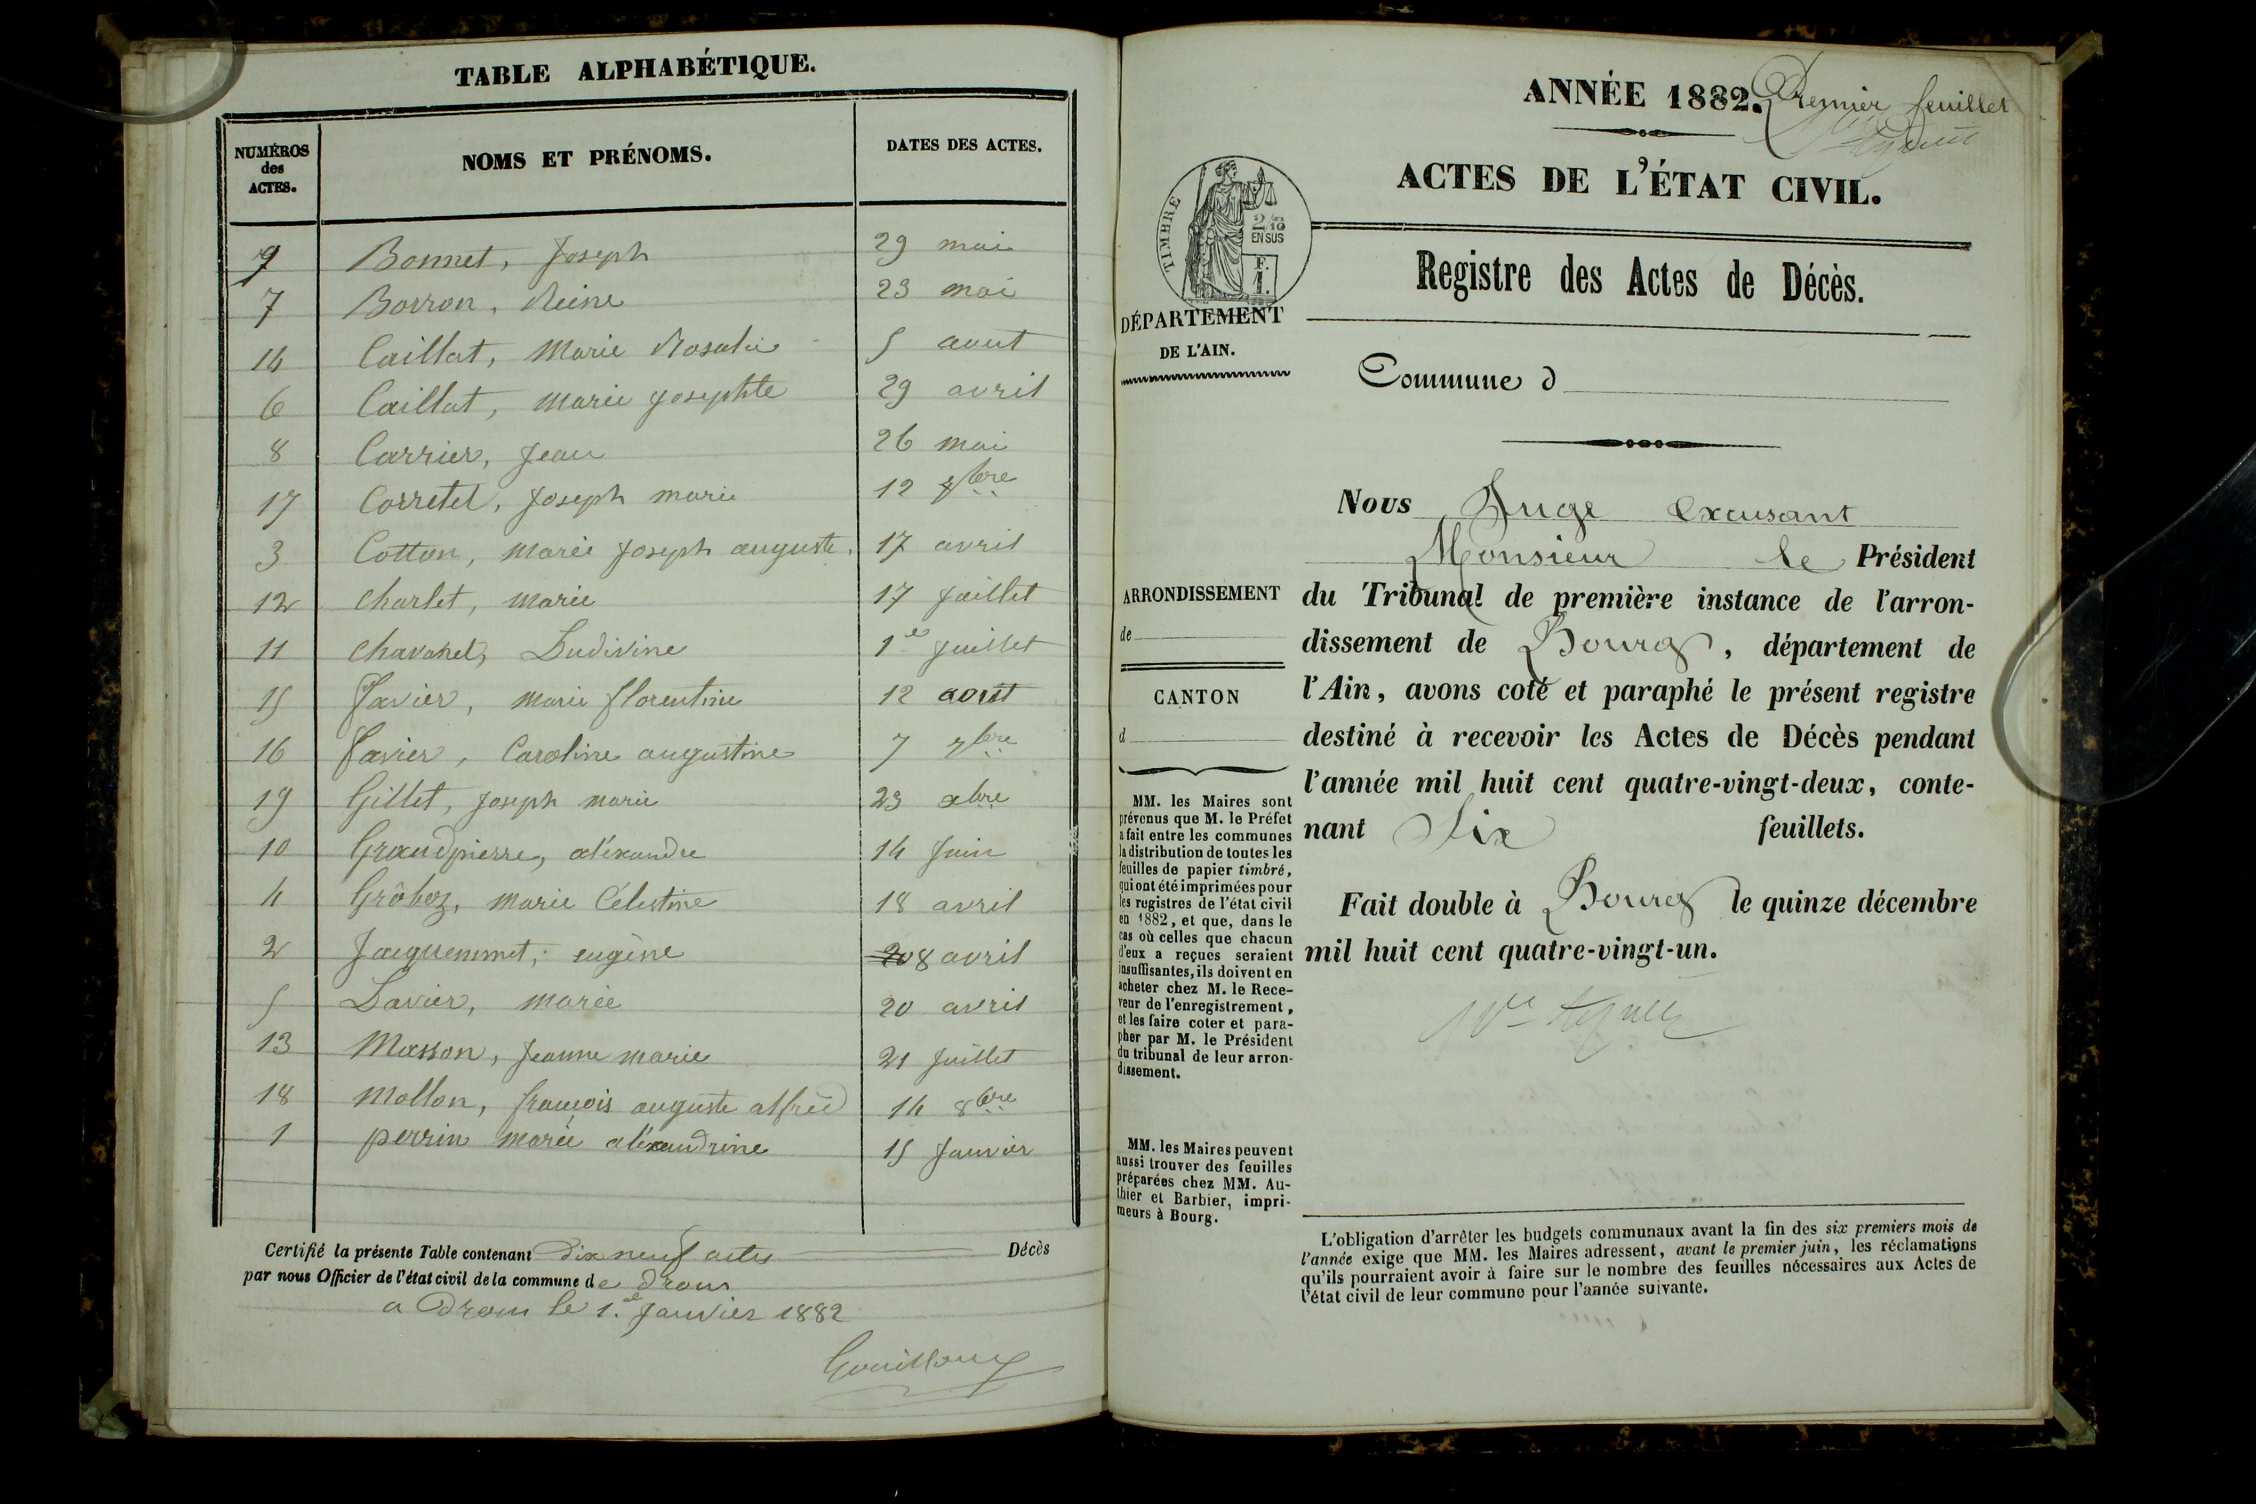 TABLE ALPHABÉTIQUE.
NUMÉROS des ACTES. NOMS ET PRÉNOMS. DATES DES ACTES.
9 Bonnet, Joseph 29 mai
7 Borron, Reine 23 mai
14 Caillat, Marie Rosalie 5 aout
6 Caillat, marie josephte 29 avril
8 Carrier, Jean 26 mai
17 Corretel, Joseph marie 12 8bre
3 Cotton, marie Joseph auguste. 17 avril
12 charlet, marie 17 Juillet
11 chavanel, Ludivine 1er Juillet
15 favier, marie florentine 12 aout
16 favier, Caroline augustine 7 7bre
19 Gillet, Joseph marie 23 xbre
10 Grandpierre, aléxandre 14 Juin
4 Grôboz, marie Célestine 18 avril
2 Jacquemmet, eugène 8 avril
5 Lavier, marie 20 avril
13 Masson, Jeanne marie 21 Juillet
18 Mollon, françois auguste alfred 14 8bre
1 perrin marie aléxandrine 15 Janvier
Certifié la présente Table contenant Dix neuf actes Décès
par nous Officier de l'état civil de la commune de drom
a Drom le 1.er Janvier 1882
Gouilloux
ANNÉE 1882. Premier feuillet
ACTES DE L'ÉTAT CIVIL.
TIMBRE
2/10
EN SUS
F.
1.
Registre des Actes de Décès.
DÉPARTEMENT
DE L'AIN.
Commune d
Nous Juge Excusant
Monsieur le Président
ARRONDISSEMENT
de
CANTON
d
du Tribunal de première instance de l'arron-
dissement de Bourg, département de
l'Ain, avons coté et paraphé le présent registre
destiné à recevoir les Actes de Décès pendant
l'année mil huit cent quatre-vingt-deux, conte-
nant Six feuillets.
Fait double à Bourg le quinze décembre
mil huit cent quatre-vingt-un.
MM. les Maires sont
prévenus que M. le Préfet
a fait entre les communes
la distribution de toutes les
feuilles de papier timbré,
qui ont été imprimées pour
les registres de l'état civil
en 1882, et que, dans le
cas où celles que chacun
d'eux a reçues seraient
insuffisantes, ils doivent en
acheter chez M. le Rece-
veur de l'enregistrement,
et les faire coter et para-
pher par M. le Président
du tribunal de leur arron-
dissement.
MM. les Maires peuvent
aussi trouver des feuilles
préparées chez MM. Au-
thier et Barbier, impri-
meurs à Bourg.
L'obligation d'arrêter les budgets communaux avant la fin des six premiers mois de
l'année exige que MM. les Maires adressent, avant le premier juin, les réclamations
qu'ils pourraient avoir à faire sur le nombre des feuilles nécessaires aux Actes de
l'état civil de leur commune pour l'année suivante.